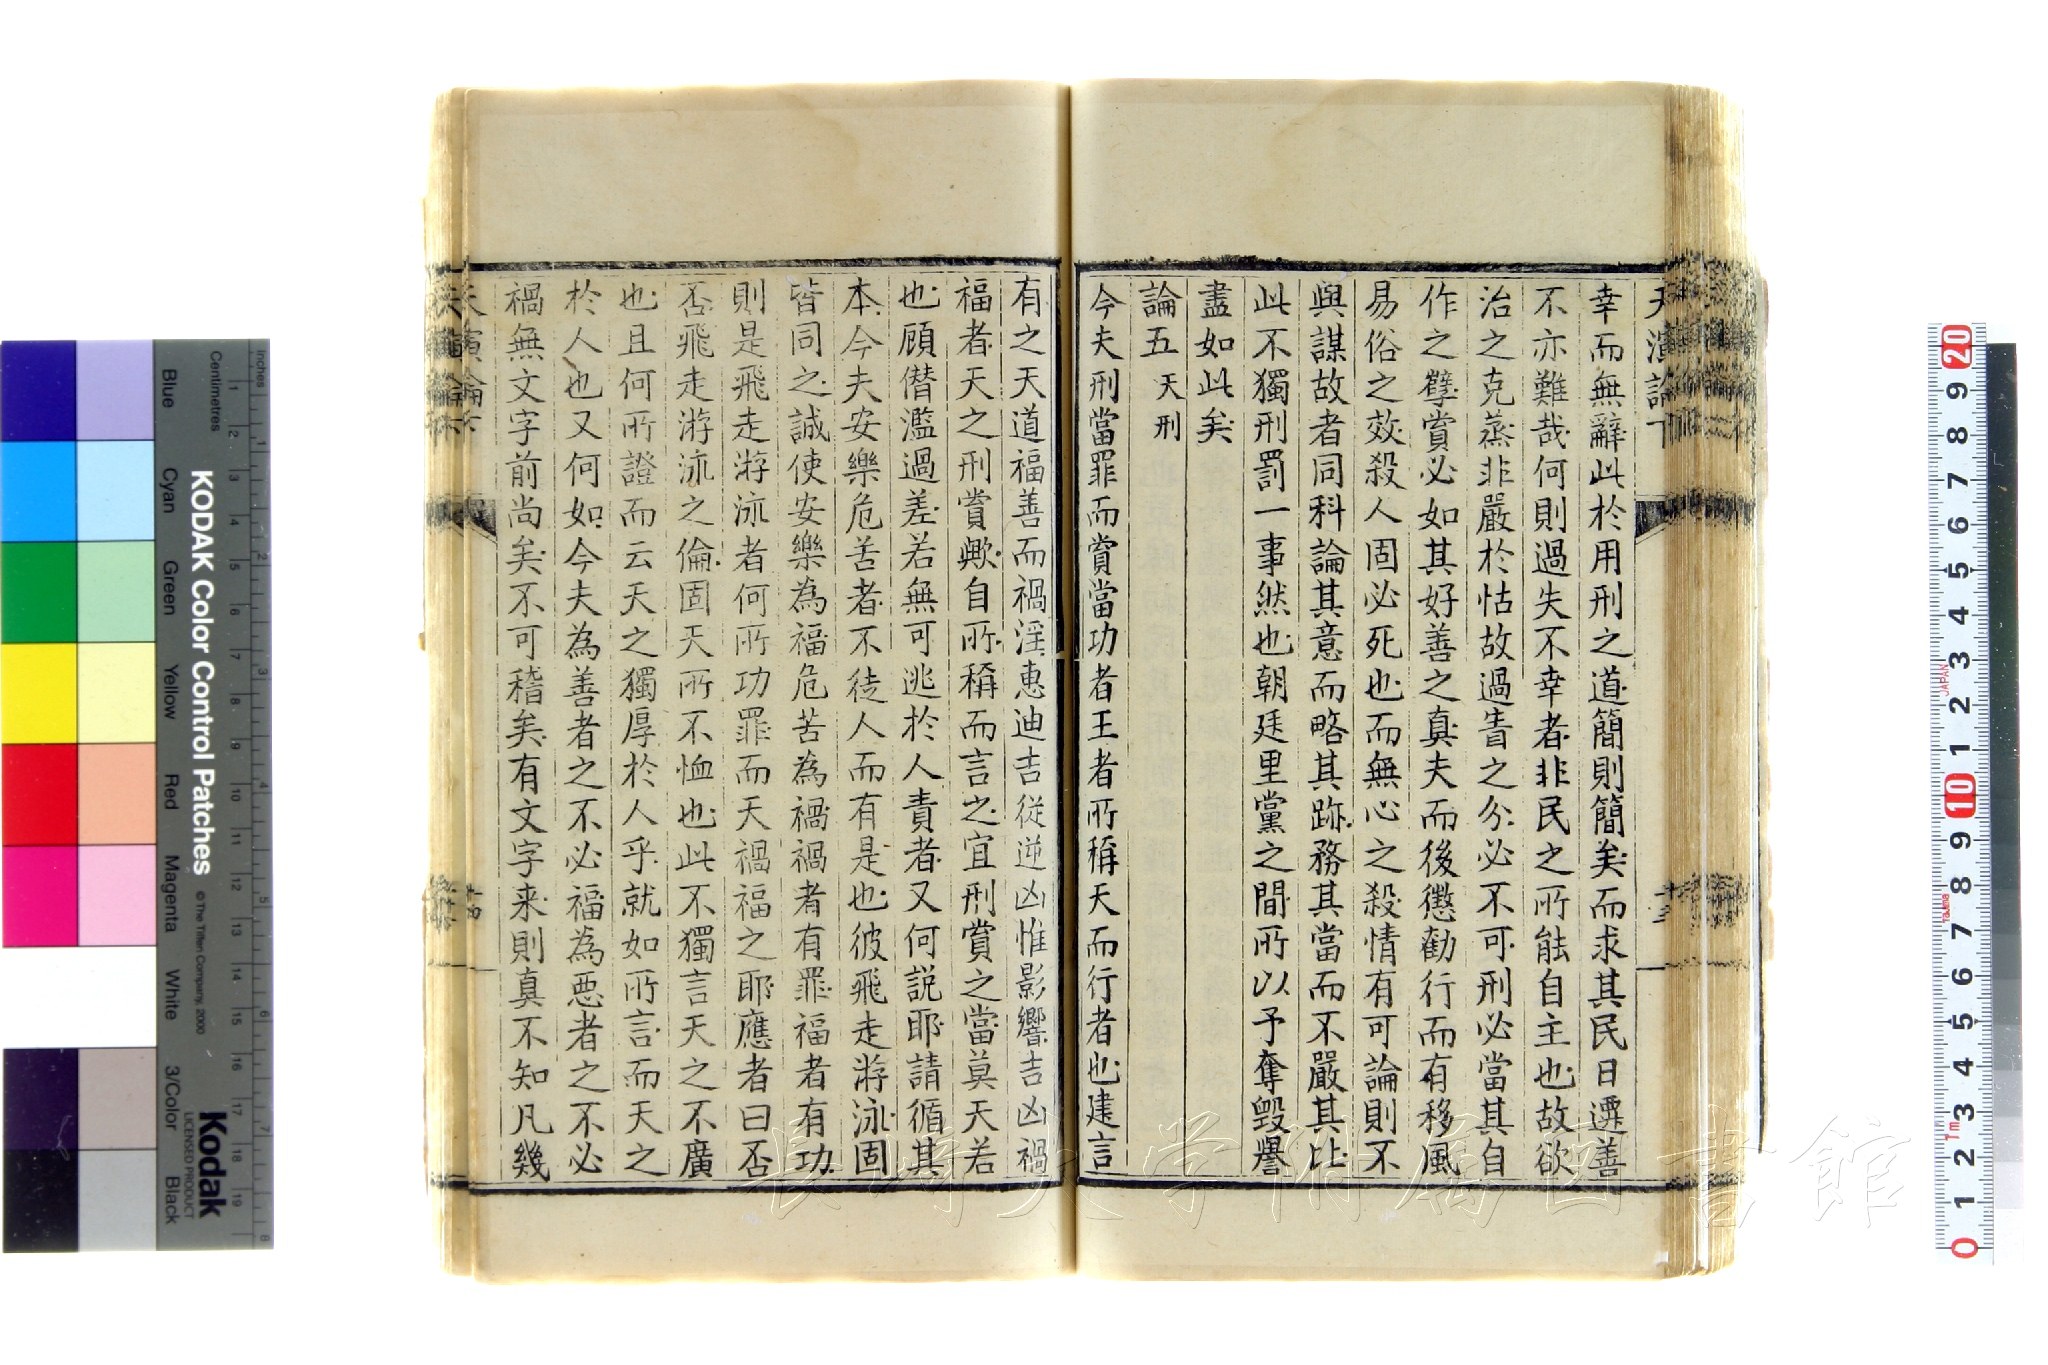 天演論下
幸而無辭此於用刑之道簡則簡矣而求其民日遷善
不亦難哉何則過失不幸者非民之所能自主也故欲
治之克蒸非嚴於怙故過眚之分必不可刑必當其自
作之孽賞必如其好善之真夫而後懲勸行而有移風
易俗之效殺人固必死也而無心之殺情有可論則不
與謀故者同科論其意而略其跡務其當而不嚴其比
此不獨刑罰一事然也朝廷里黨之間所以予奪毀譽
盡如此矣
論五 天刑
今夫刑當罪而賞當功者王者所稱天而行者也建言
十三
有之天道福善而禍淫惠迪吉從逆凶惟影響吉凶禍
福者天之刑賞歟自所稱而言之宜刑賞之當莫天若
也顧僭濫過差若無可逃於人責者又何説耶請循其
本今夫安樂危苦者不徒人而有是也彼飛走游泳固
皆同之誠使安樂為福危苦為禍禍者有罪福者有功
則是飛走游泳者何所功罪而天禍福之耶應者曰否
否飛走游泳之倫固天所不恤也此不獨言天之不廣
也且何所證而云天之獨厚於人乎就如所言而天之
於人也又何如今夫為善者之不必福為惡者之不必
禍無文字前尚矣不可稽矣有文字来則真不知凡幾
天演論下
十四
KODAK Color Control Patches
© The Tiffen Company, 2000
Kodak
LICENSED PRODUCT
Blue Cyan Green Yellow Red Magenta White 3/Color Black
Inches 1 2 3 4 5 6 7 8
Centimetres 1 2 3 4 5 6 7 8 9 10 11 12 13 14 15 16 17 18 19
20 9 8 7 6 5 4 3 2 1 10 9 8 7 6 5 4 3 2 1 0
JAPAN
長崎大学附属図書館